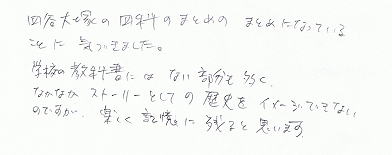 四谷大塚の四科のまとめの まとめになっている
ことに 気づきました。
学校の教科書には ない部分も多く、
なかなか ストーリーとしての歴史を イメージできない
のですが、楽しく 記憶に 残ると思います。